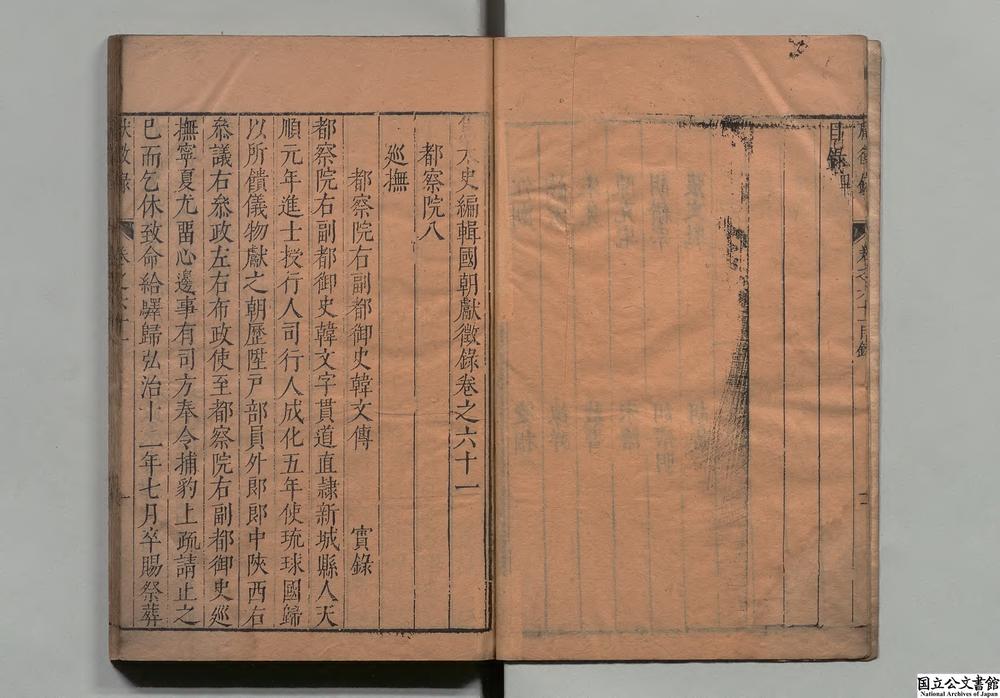 目錄畢
卷之六十一目錄
太史編輯國朝獻徵錄卷之六十一
都察院八
巡撫
都察院右副都御史韓文傳 實錄
都察院右副都御史韓文字貫道直隸新城縣人天
順元年進士授行人司行人成化五年使琉球國歸
以所饋儀物獻之朝歷陞戸部員外郎郎中陝西右
叅議右叅政左右布政使至都察院右副都御史巡
撫寧夏尤畱心邊事有司方奉令捕豹上疏請止之
巳而乞休致命給驛歸弘治十二年七月卒賜祭葬
獻徵錄 卷之六十一 一
國立公文書館
National Archives of Japan